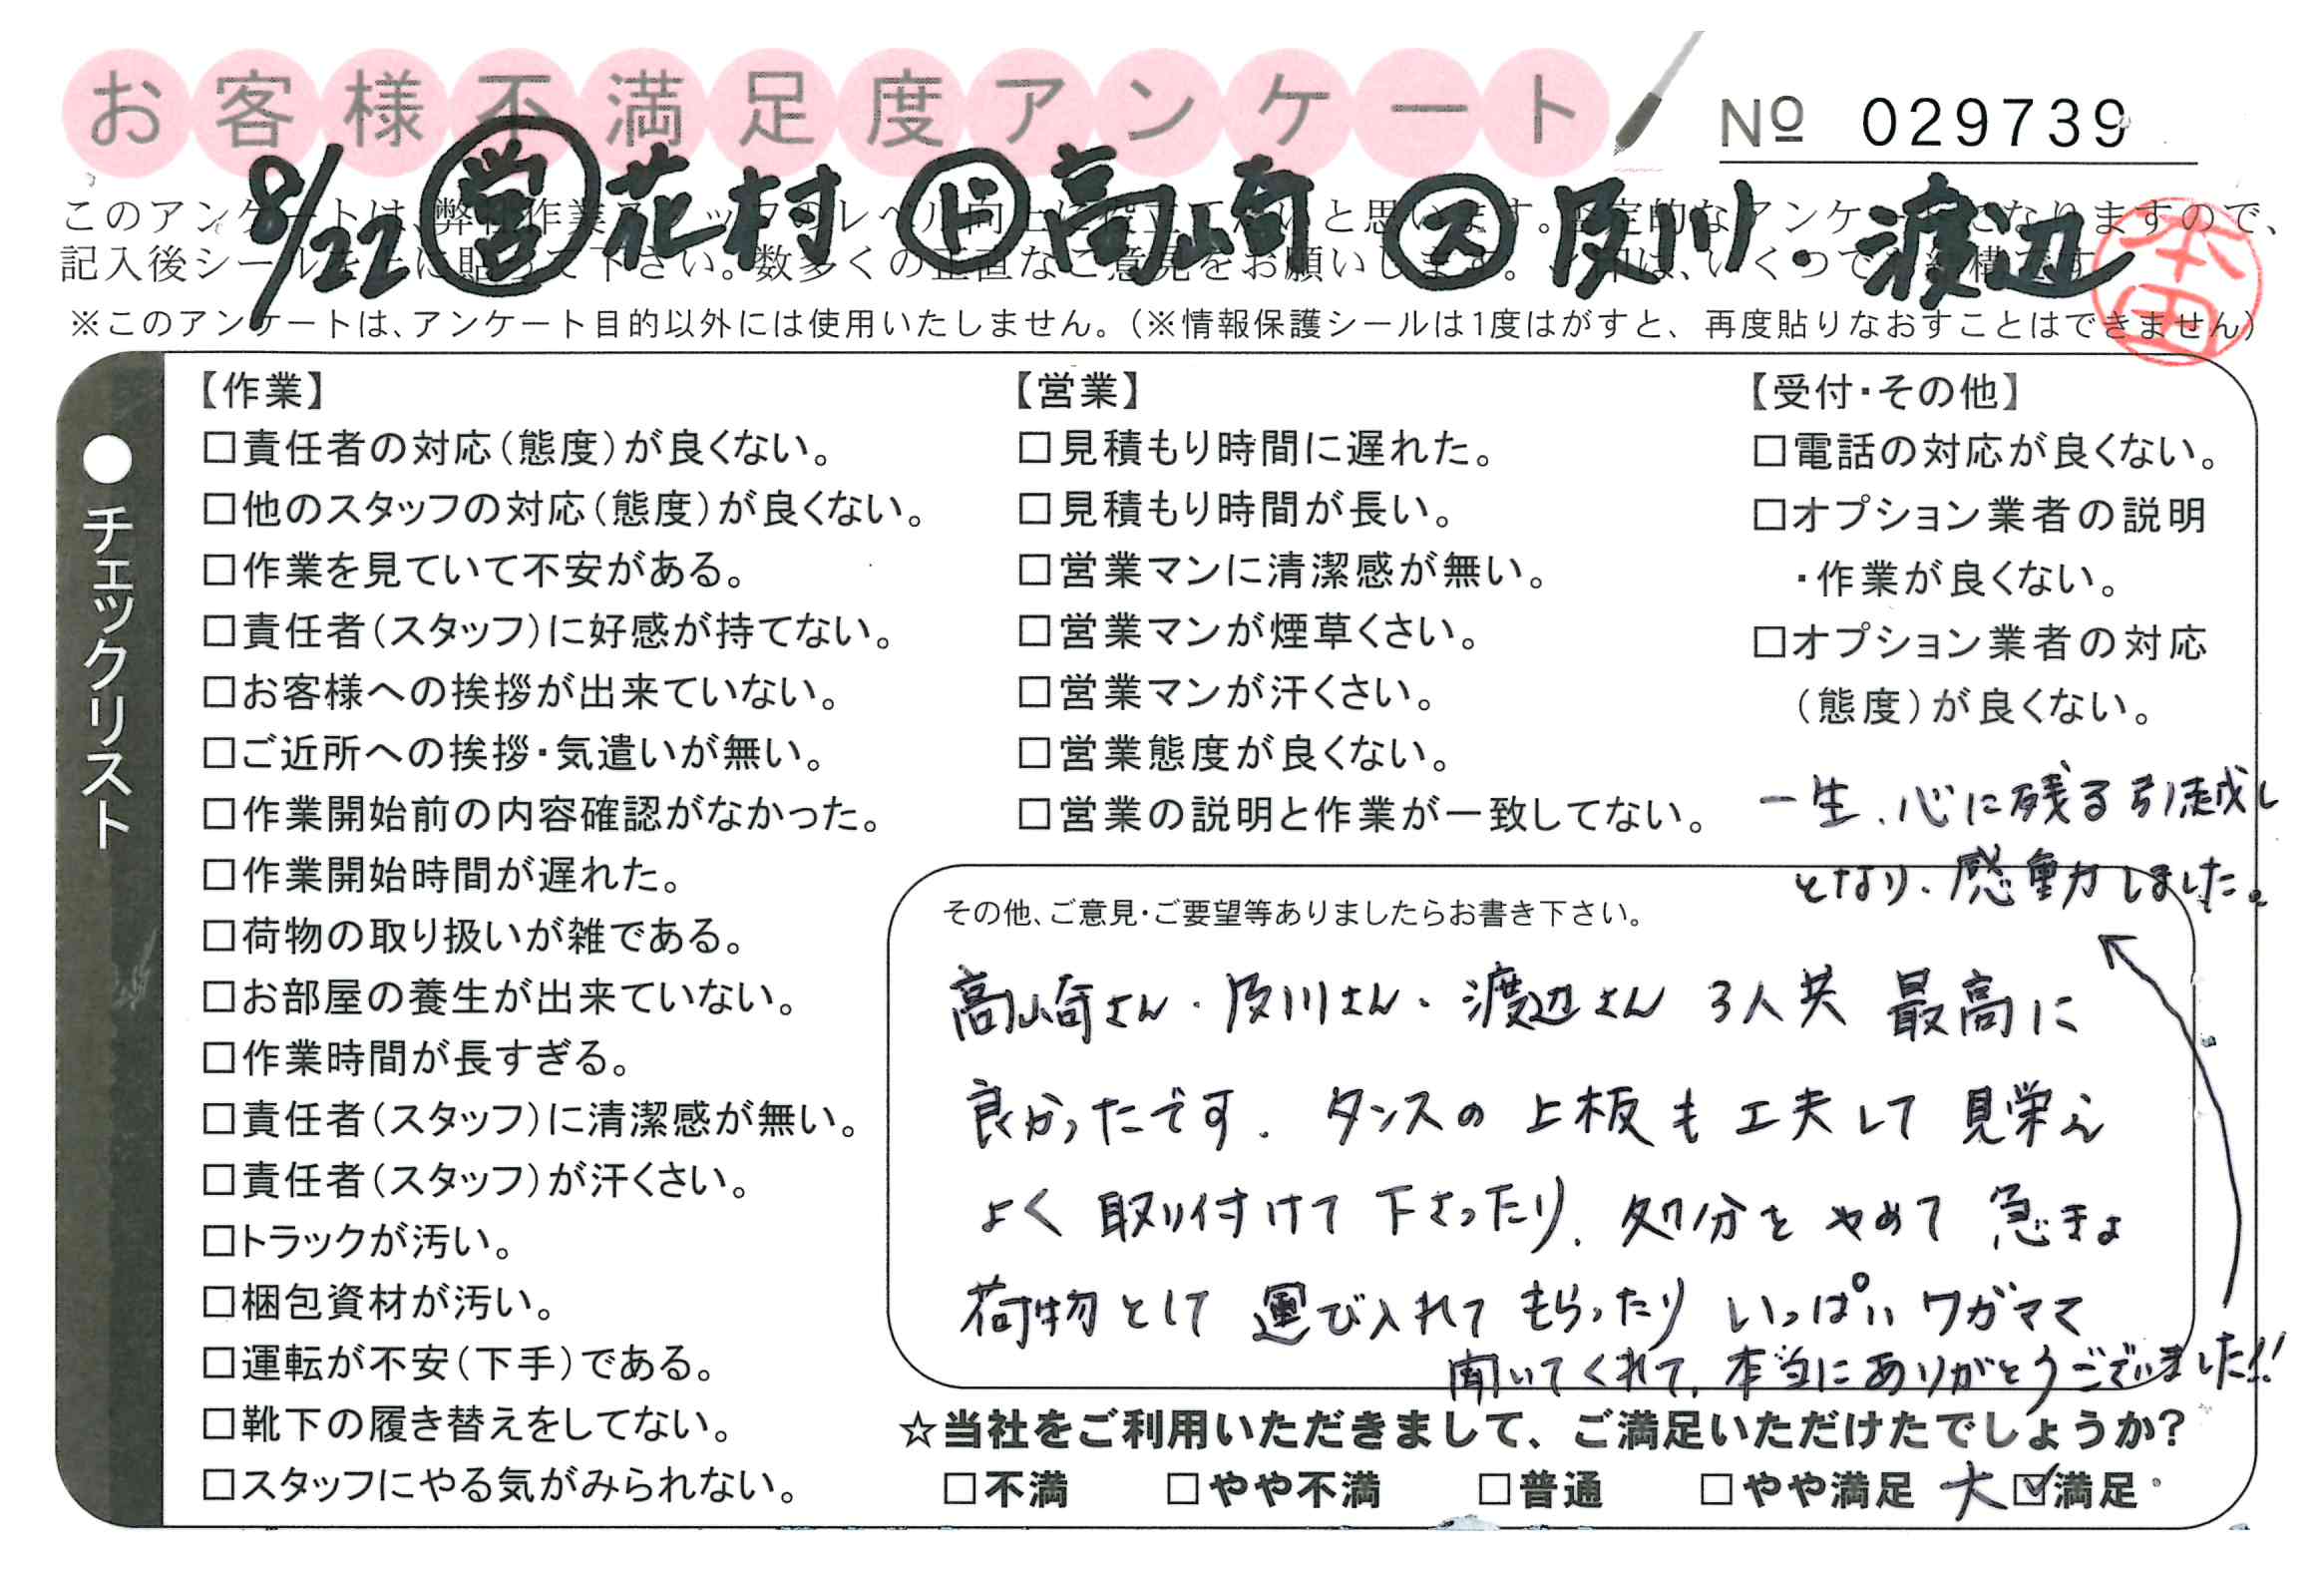 お客様不満足度アンケート
№ 029739
8/22 営 花村 ド 高崎 ス 及川・渡辺
本田
このアンケートは、弊社作業スタッフのレベル向上に役立てたいと思います。
記入後シールを上に貼って下さい。数多くの正直なご意見をお願いします。
※このアンケートは、アンケート目的以外には使用いたしません。(※情報保護シールは1度はがすと、再度貼りなおすことはできません)
●チェックリスト
【作業】
□責任者の対応(態度)が良くない。
□他のスタッフの対応(態度)が良くない。
□作業を見ていて不安がある。
□責任者(スタッフ)に好感が持てない。
□お客様への挨拶が出来ていない。
□ご近所への挨拶・気遣いが無い。
□作業開始前の内容確認がなかった。
□作業開始時間が遅れた。
□荷物の取り扱いが雑である。
□お部屋の養生が出来ていない。
□作業時間が長すぎる。
□責任者(スタッフ)に清潔感が無い。
□責任者(スタッフ)が汗くさい。
□トラックが汚い。
□梱包資材が汚い。
□運転が不安(下手)である。
□靴下の履き替えをしてない。
□スタッフにやる気がみられない。
【営業】
□見積もり時間に遅れた。
□見積もり時間が長い。
□営業マンに清潔感が無い。
□営業マンが煙草くさい。
□営業マンが汗くさい。
□営業態度が良くない。
□営業の説明と作業が一致してない。
【受付・その他】
□電話の対応が良くない。
□オプション業者の説明
・作業が良くない。
□オプション業者の対応
(態度)が良くない。
その他、ご意見・ご要望等ありましたらお書き下さい。
高崎さん・及川さん・渡辺さん 3人共 最高に
良かったです。タンスの上板も工夫して見栄え
よく取り付けて下さったり、処分をやめて急きょ
荷物として運び入れてもらったりいっぱいワガママ
聞いてくれて、本当にありがとうございました!!
一生、心に残る引越し
となり、感動しました。
☆当社をご利用いただきまして、ご満足いただけたでしょうか?
□不満 □やや不満 □普通 □やや満足 大☑満足